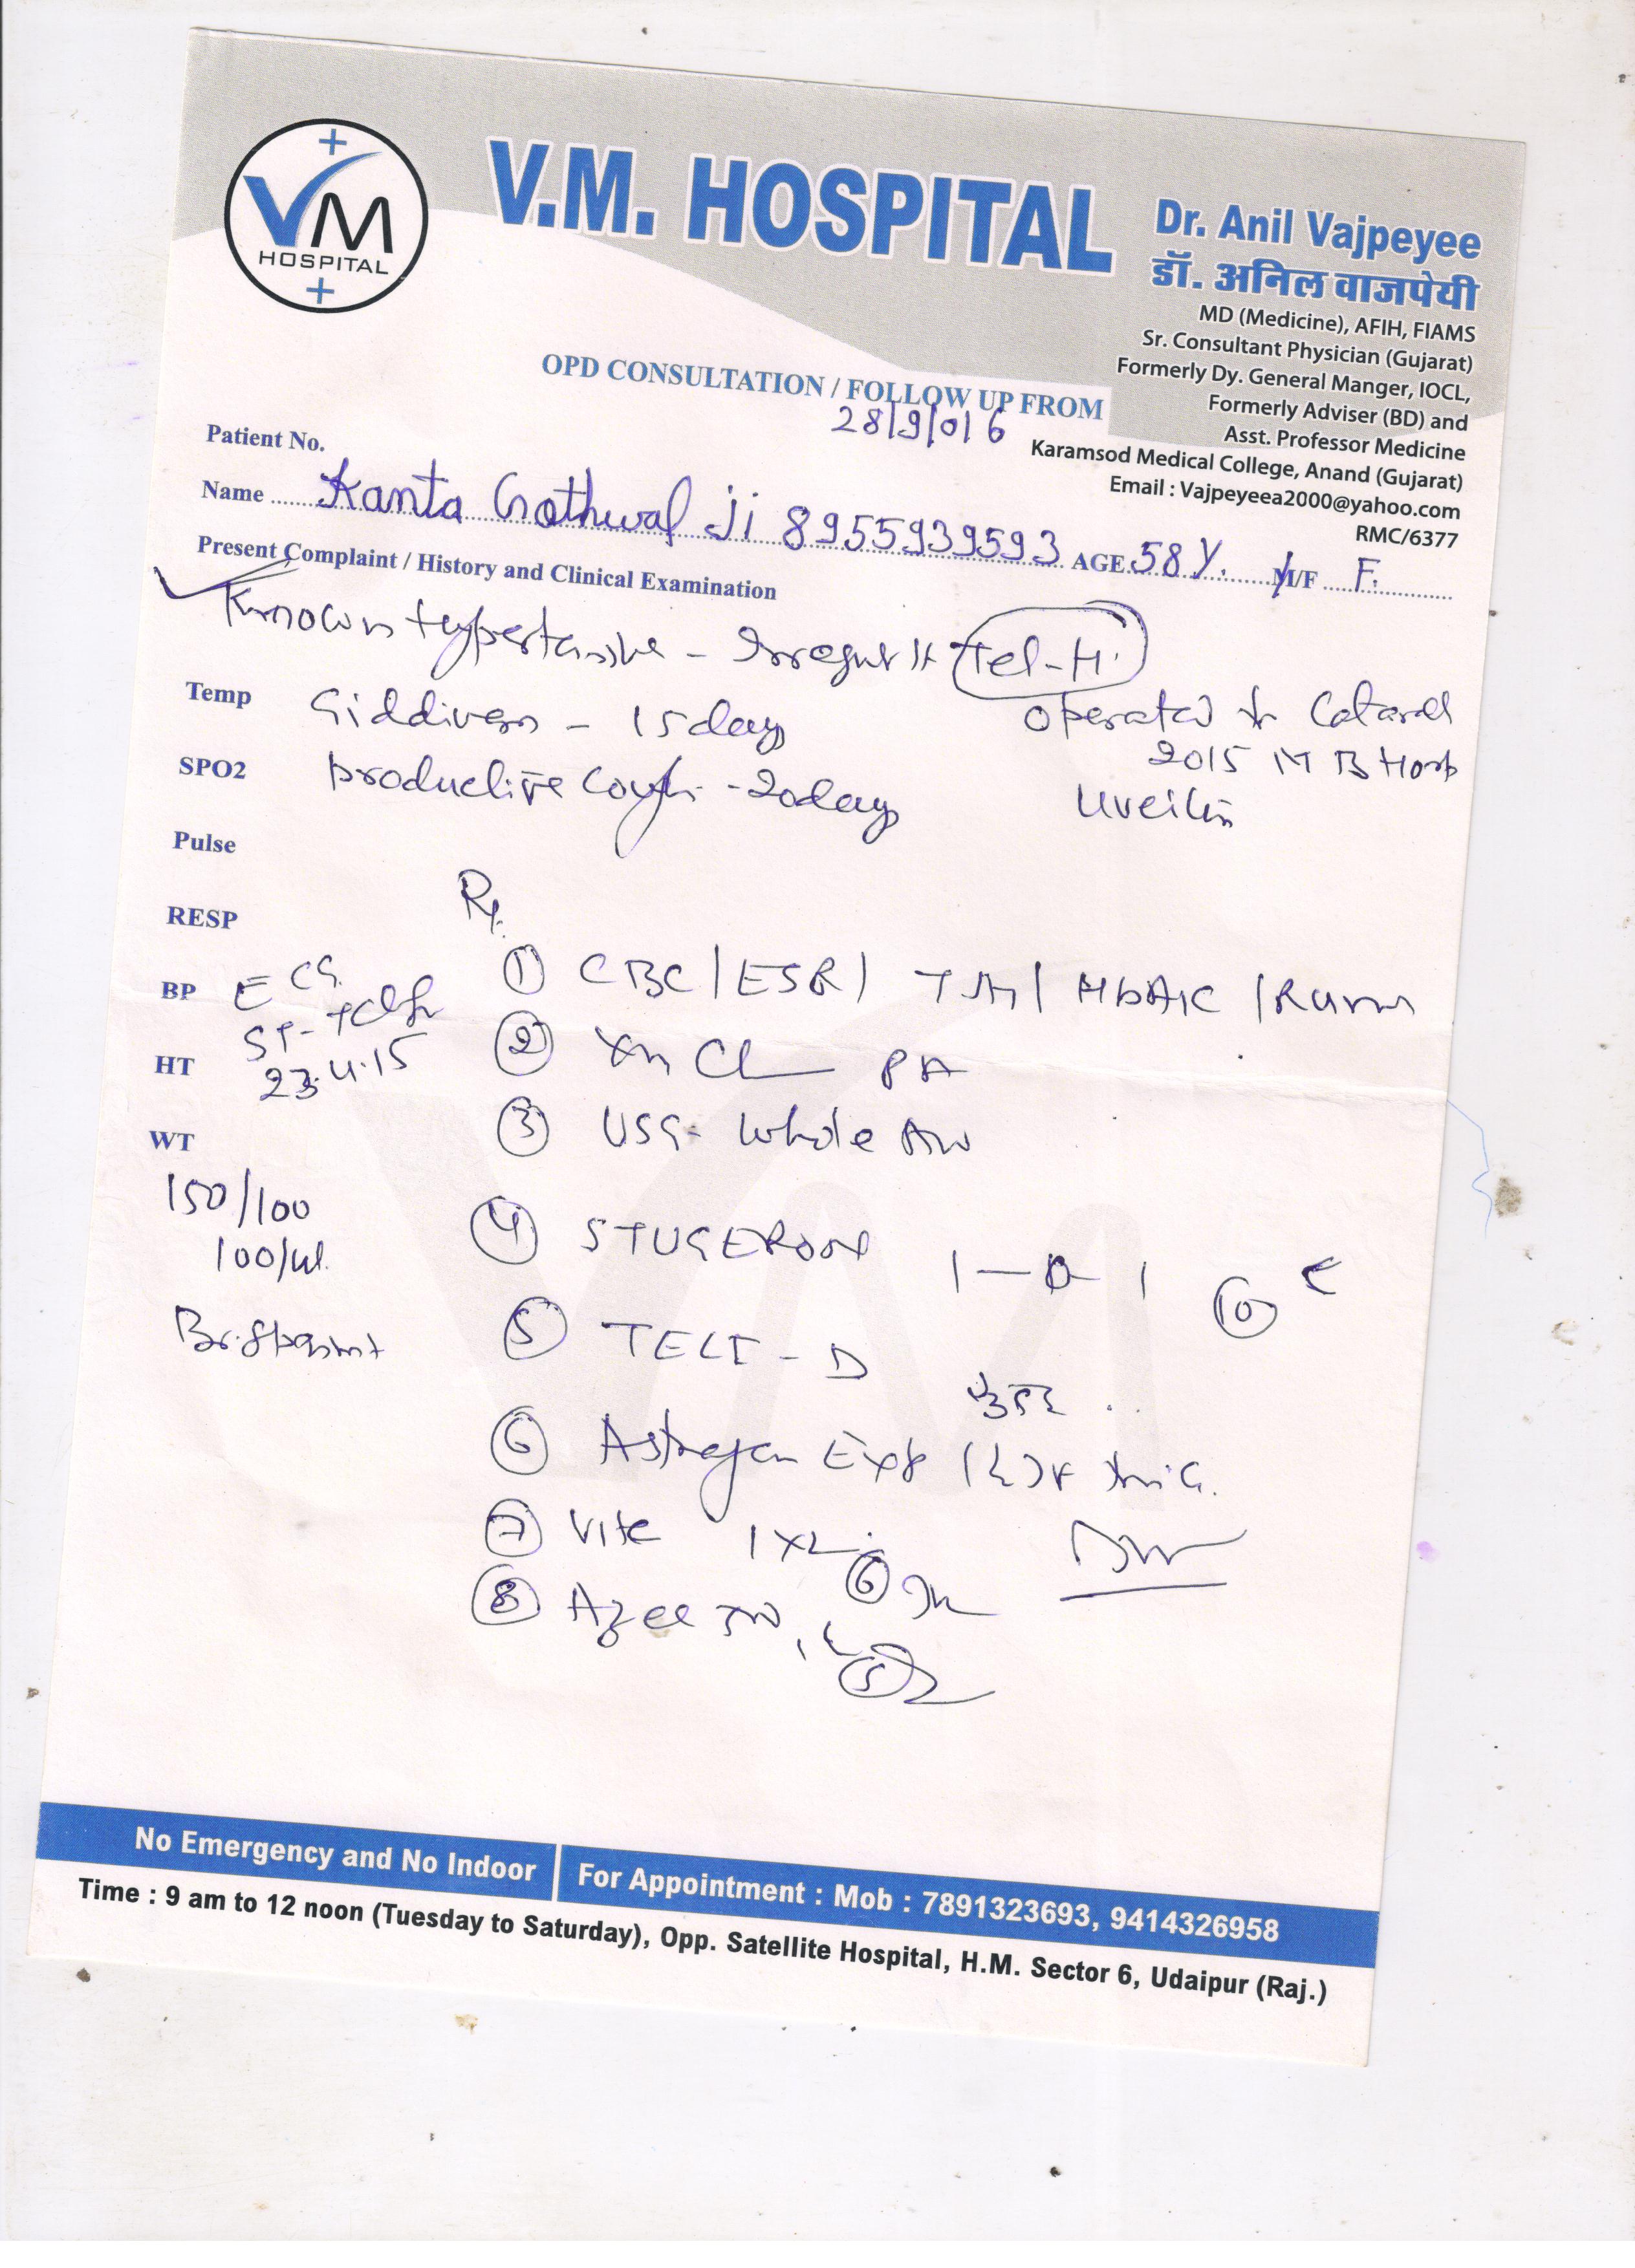 VM
HOSPITAL
V.M. HOSPITAL
Dr. Anil Vajpeyee
डॉ. अनिल वाजपेयी
MD (Medicine), AFIH, FIAMS
Sr. Consultant Physician (Gujarat)
Formerly Dy. General Manger, IOCL,
Formerly Adviser (BD) and
Asst. Professor Medicine
Karamsod Medical College, Anand (Gujarat)
Email : Vajpeyeea2000@yahoo.com
RMC/6377
OPD CONSULTATION / FOLLOW UP FROM
28/9/016
Patient No.
Name Kanta Gothwal Ji 8955939593 AGE 58 Y. M/F F.
Present Complaint / History and Clinical Examination
Known Hypertensive - Irregular Tel-H
Temp Giddiness - 15 days
operated for Cataract
2015 M B Hosp
SPO2 productive Cough - 20 days
Uveitis
Pulse
RESP
Rx
BP ECG
ST-T
HT 23.4.15
WT
150/100
100/
① CBC / ESR / TSH / HbA1c /
② PA
③ USG - Whole
④ STUGERON 1-0-1 10
⑤ TELI - D
⑥ Exp
⑦ 1x2 6
⑧ Azee 5
No Emergency and No Indoor
For Appointment : Mob : 7891323693, 9414326958
Time : 9 am to 12 noon (Tuesday to Saturday), Opp. Satellite Hospital, H.M. Sector 6, Udaipur (Raj.)